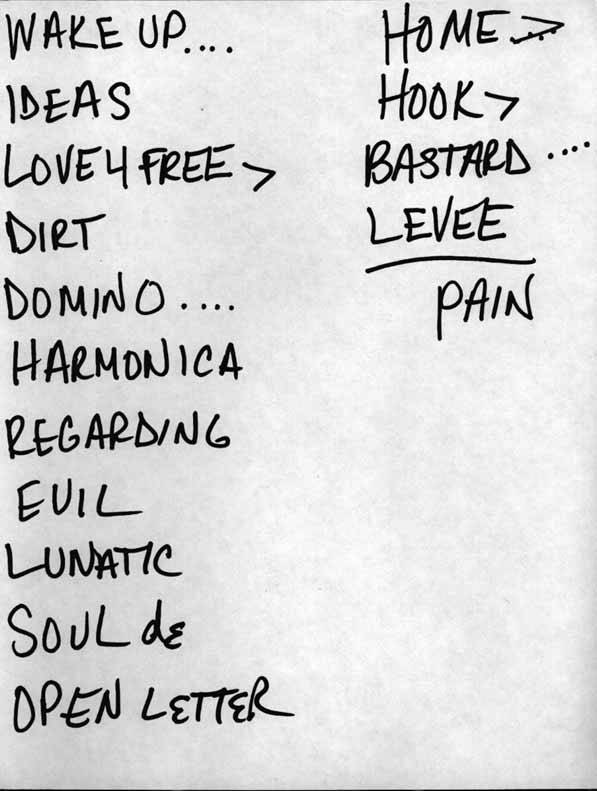 WAKE UP....
IDEAS
LOVE 4 FREE >
DIRT
DOMINO ....
HARMONICA
REGARDING
EVIL
LUNATIC
SOUL de
OPEN LETTER
HOME ...>
HOOK >
BASTARD ....
LEVEE
PAIN